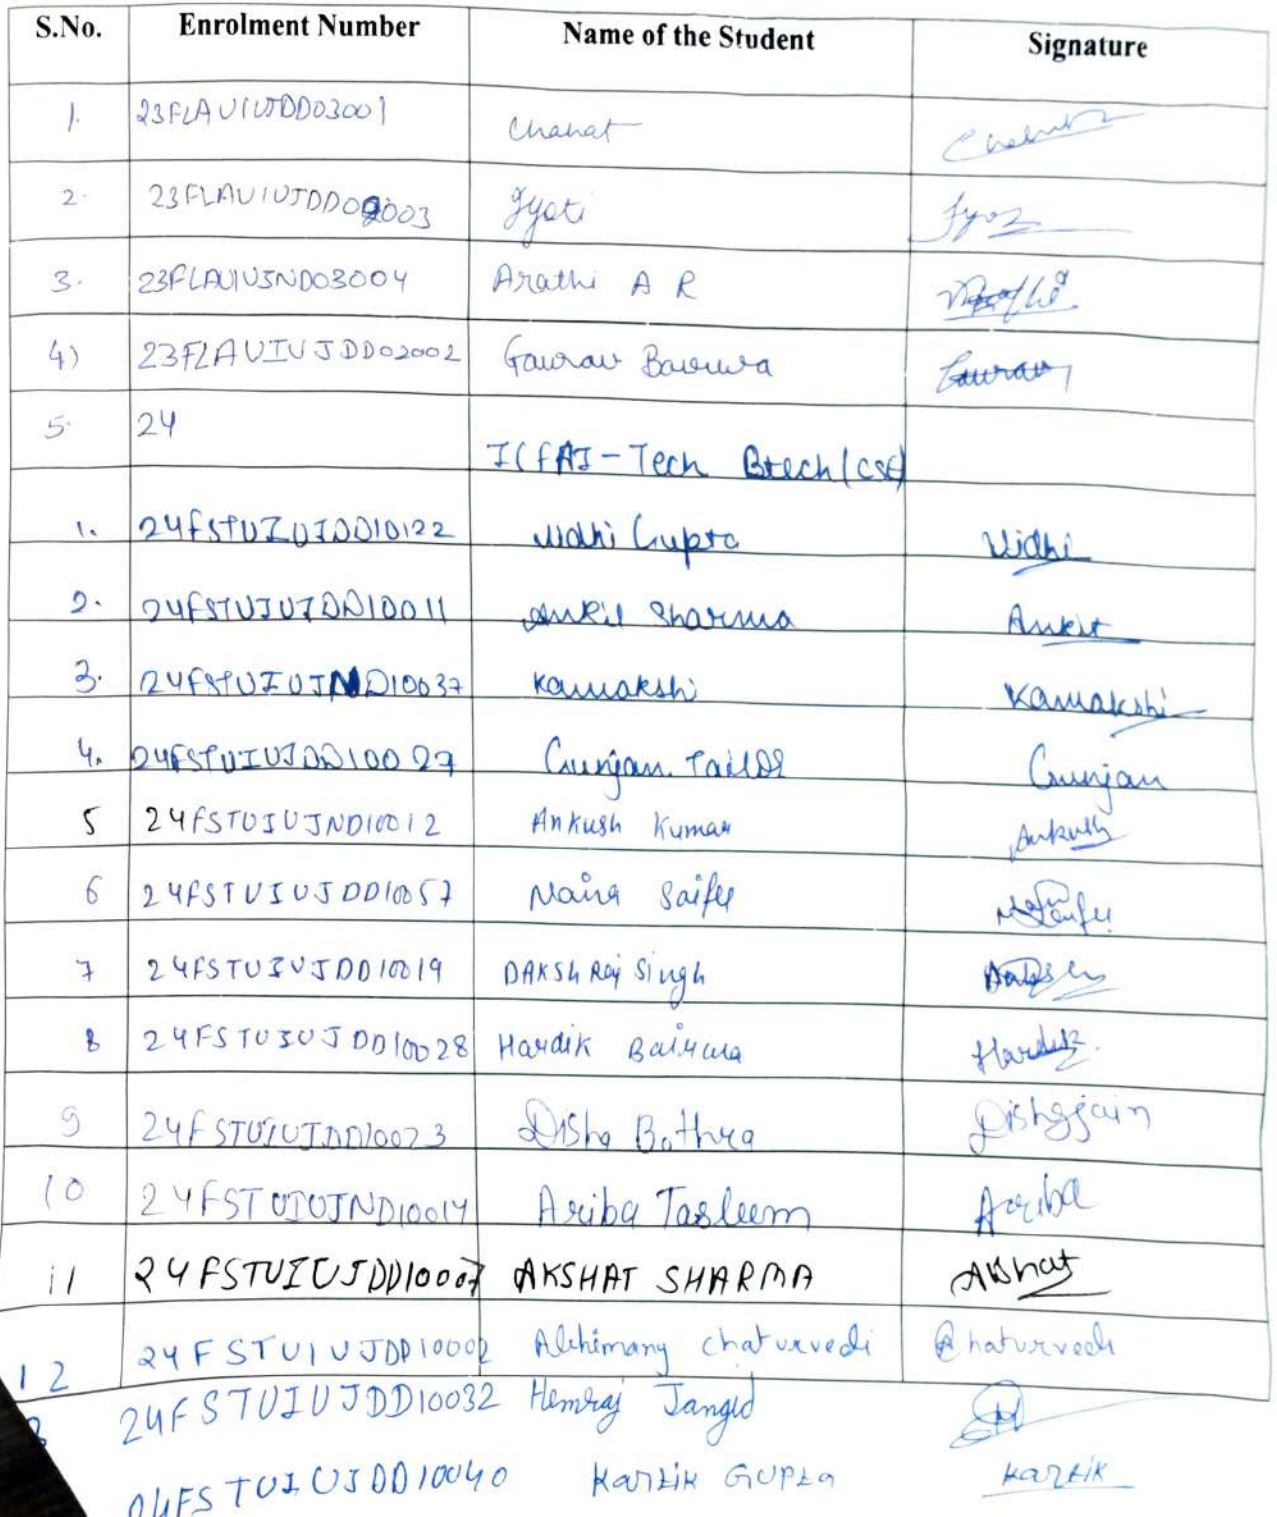 S.No. Enrolment Number Name of the Student Signature
1. 23FLAUIUJDD03001 Chahat
2. 23FLAUIUJDD02003 Jyoti Jyoti
3. 23FLAUIUJND03004 Arathi A R
4) 23FLAUIUJDD02002 Gaurav Bairwa Gaurav
5. 24
ICFAI-Tech Btech(CSE)
1. 24FSTUIUJDD10122 Vidhi Gupta Vidhi
2. 24FSTUIUJDD10011 Ankit Sharma Ankit
3. 24FSTUIUJND10037 Kamakshi Kamakshi
4. 24FSTUIUJDD10027 Gunjan Tailor Gunjan
5 24FSTUIUJND10012 Ankush Kumar Ankush
6 24FSTUIUJDD10057 Naira Saify
7 24FSTUIUJDD10019 DAKSH Raj Singh Daksh
8 24FSTUIUJDD10028 Hardik Bairwa Hardik
9 24FSTUIUJDD10023 Disha Bothra Disha Jain
10 24FSTUIUJND10014 Ariba Tasleem Ariba
11 24FSTUIUJDD10007 AKSHAT SHARMA Akshat
12 24FSTUIUJDD10002 Abhimany chaturvedi Chaturvedi
24FSTUIUJDD10032 Hemraj Jangid
24FSTUIUJDD10040 Kartik GUPta Kartik